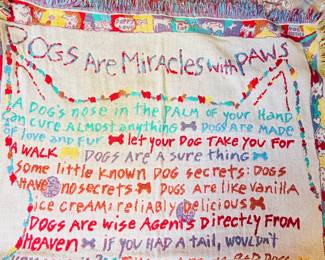 DOGS Are MiRACLes with PAWS
A DOG'S NOSE IN THE PALM OF YOUR HAND
CAN CURE ALMOST ANYTHING DOGS ARE MADE
OF LOVE AND FUR LET YOUR DOG TAKE YOU FOR
A WALK DOGS ARE A SURE THING
SOME LITTLE KNOWN DOG SECRETS: DOGS
HAVE NO SECRETS DOGS ARE LIKE VANILLA
ICE CREAM: RELIABLY DELICIOUS
DOGS ARE WISE AGENTS DIRECTLY FROM
HEAVEN IF YOU HAD A TAIL, WOULDN'T